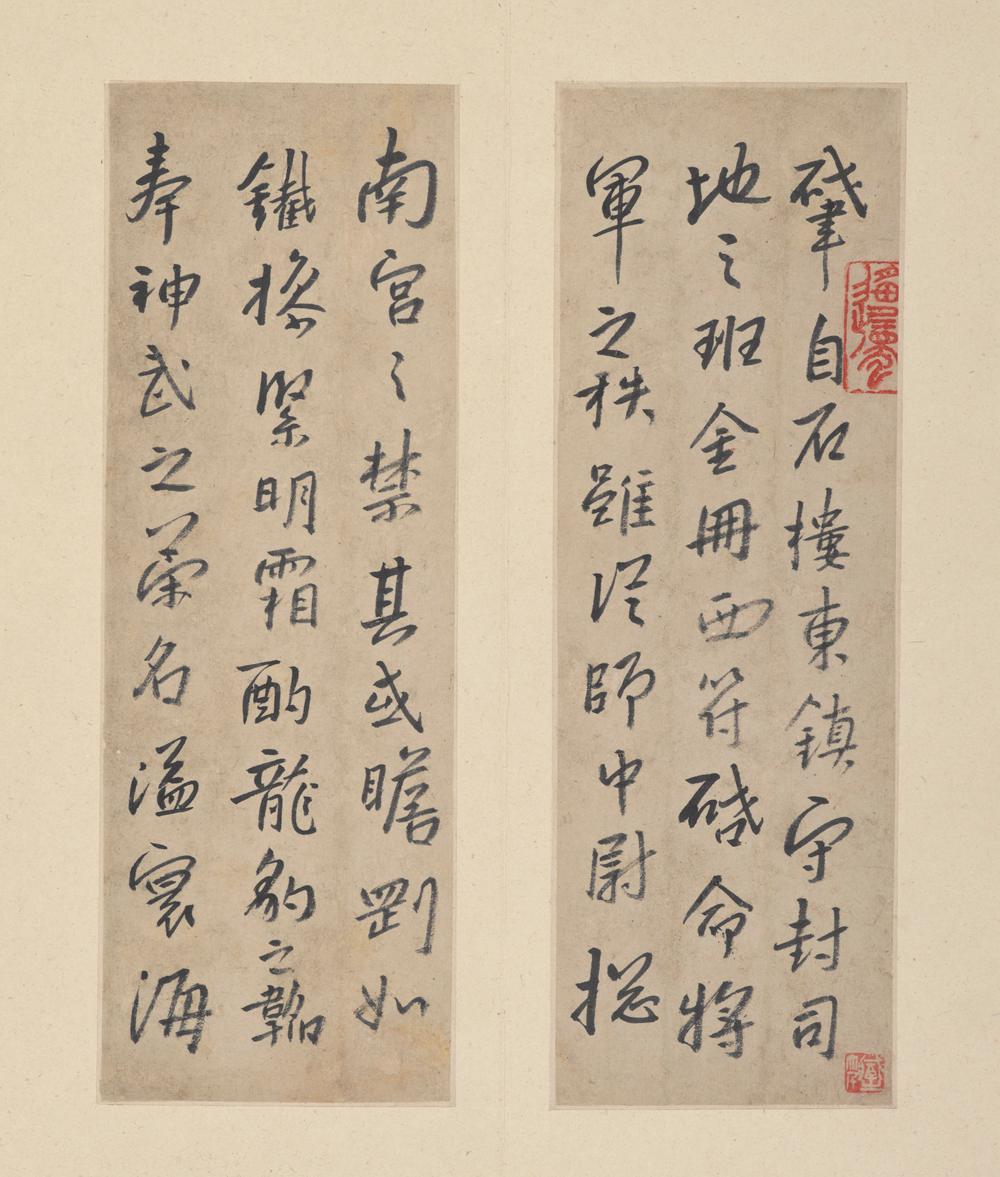 肇自石樓東鎮守封司
地之班金冊西符啓命將
軍之秩雖從師中尉揔
南宮之禁其或膽剛如
鐵操緊明霜酌龍豹之韜
奉神武之名溢寰海